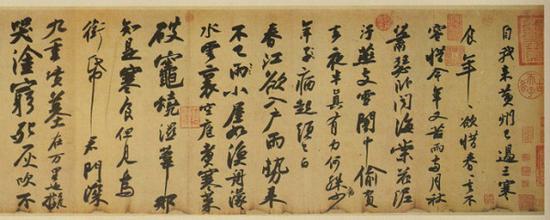 自我來黃州已過三寒
食年〻欲惜春〻去不
容惜今年又苦雨兩月秋
蕭瑟卧聞海棠花泥
汙燕支雪闇中偷負
去夜半真有力何殊少
年子病起頭已白
春江欲入戶雨勢來
不已雨小屋如漁舟濛〻
水雲裏空庖煮寒菜
破竈燒濕葦那
知是寒食但見烏
銜帋君門深
九重墳墓在万里也擬
哭塗窮死灰吹不